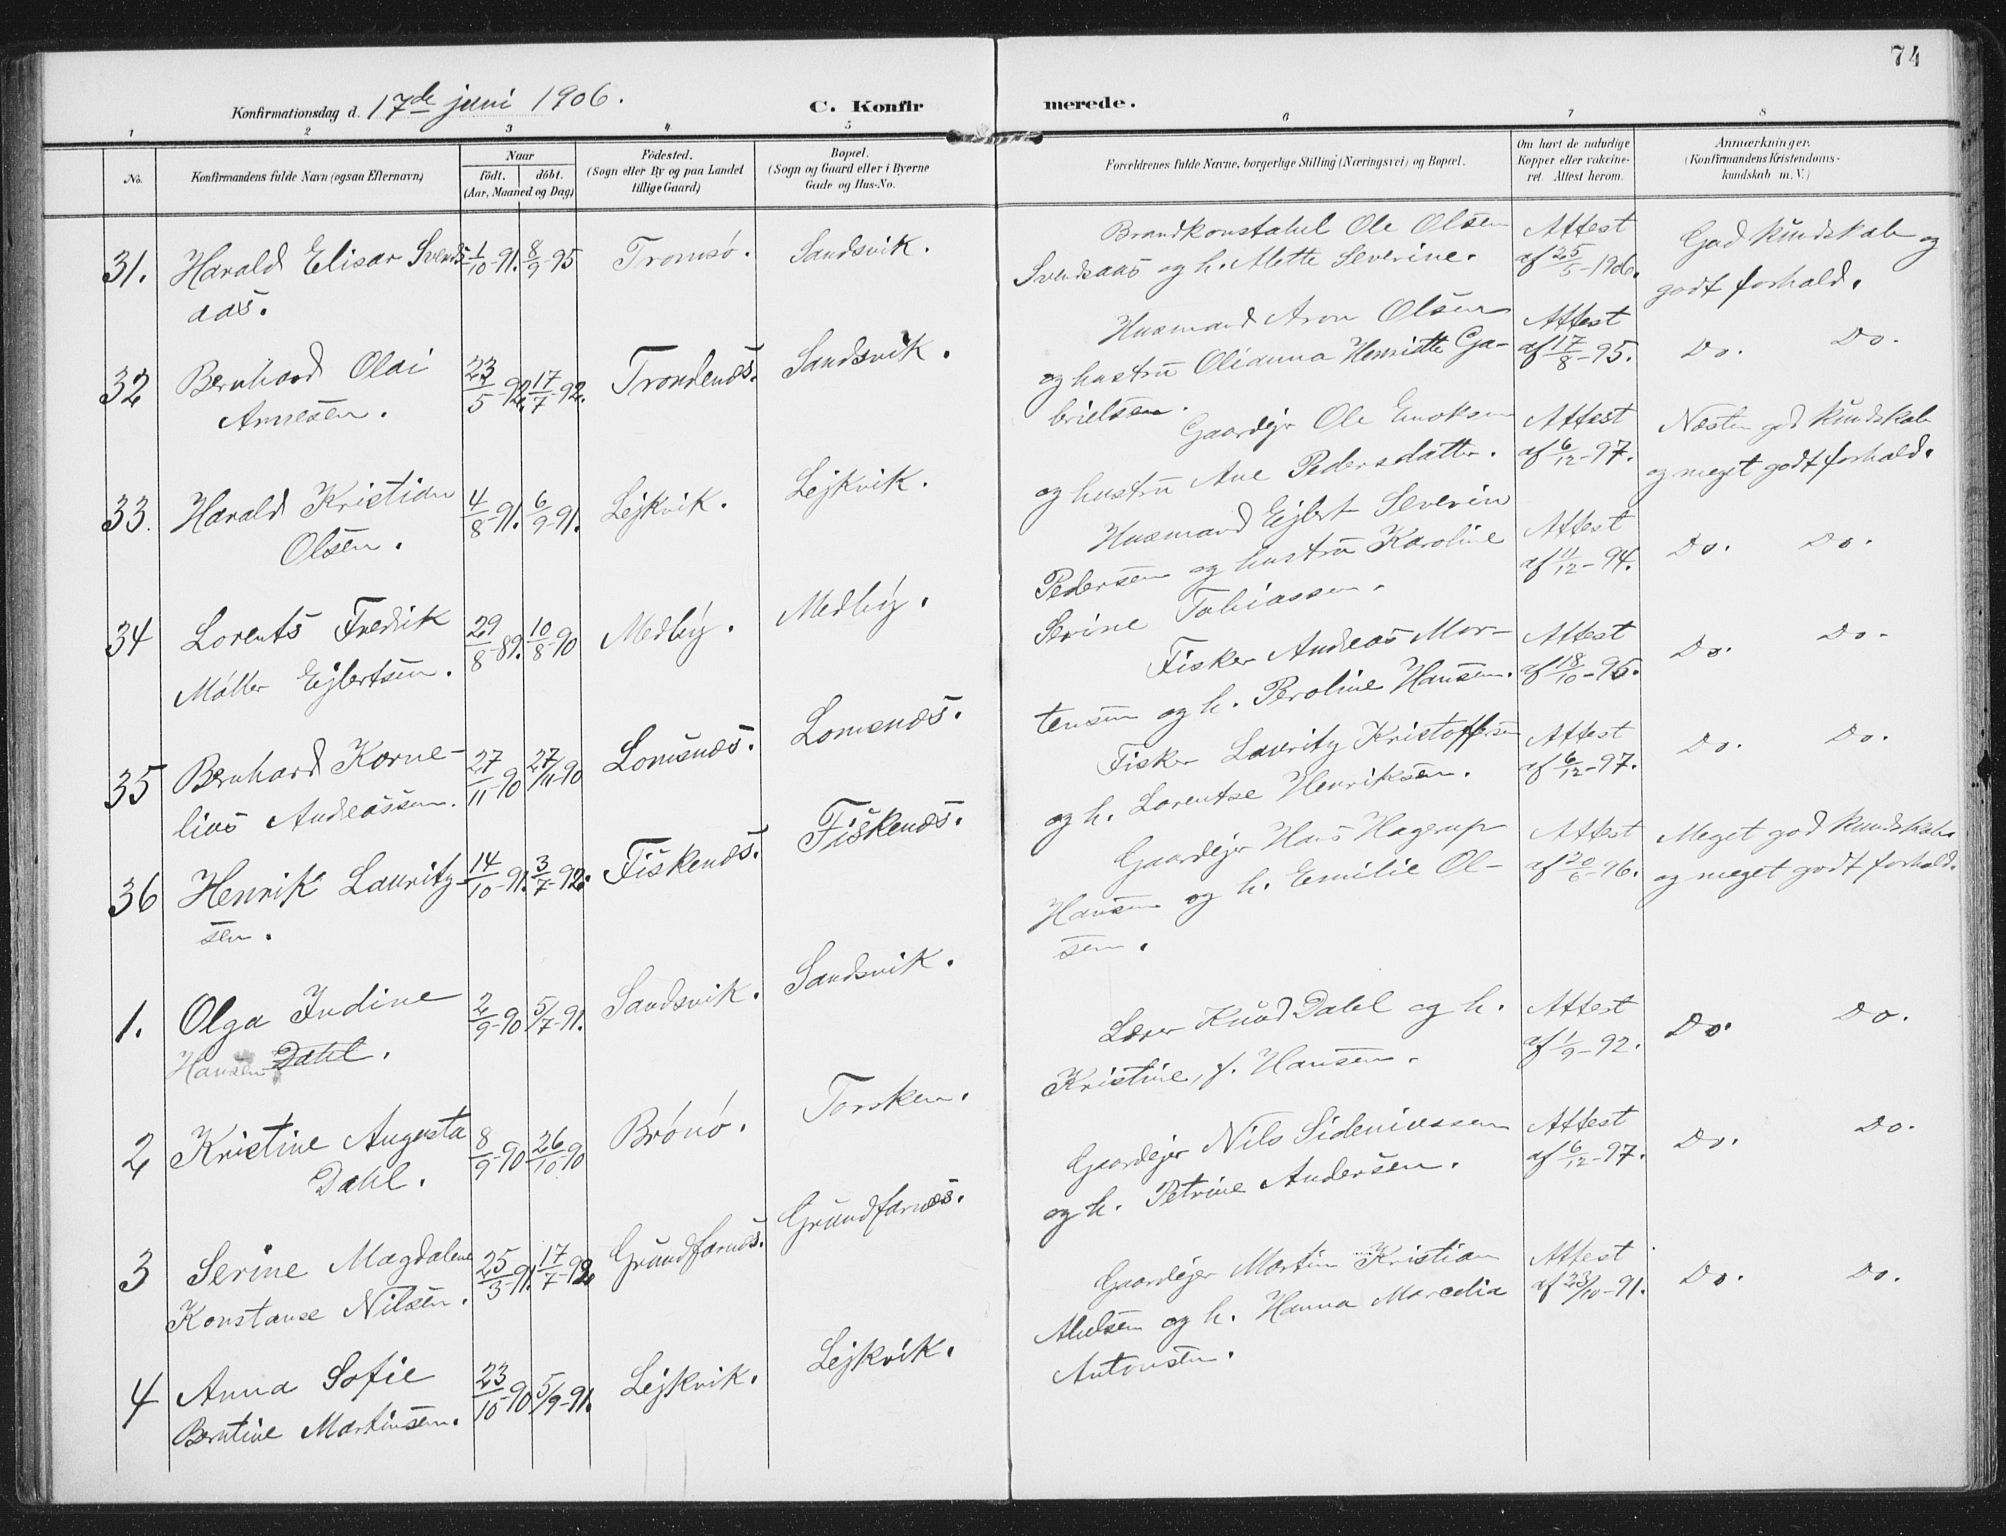 74
Konfirmationsdag d. 17de juni 1906.
C. Konfirmerede.
1 2 3 4 5 6 7 8
No.
Konfirmandens fulde Navn (ogsaa Efternavn)
Naar
födt. döbt.
(Aar, Maaned og Dag)
Födested.
(Sogn eller By og paa Landet
tillige Gaard)
Bopæl.
(Sogn og Gaard eller i Byerne
Gade og Hus-No.
Forældrenes fulde Navne, borgerlige Stilling (Næringsvei) og Bopæl.
Om havt de naturlige
Kopper eller vakcine-
ret. Attest herom.
Anmærkninger.
(Konfirmandens Kristendoms-
kundskab m. V.)
31. Harald Elisar Svends- 1/10-91. 8/9-95 Tromsø. Sandsvik.
aas.
Brandkonstabel Ole Olsen
Svendsaas og h. Mette Severine.
Attest
af 25/5-1906.
God kundskab og
godt forhold.
32 Bernhard Olai 23/5-92. 17/7-92. Trondenæs. Sandsvik.
Arnesen.
Husmand Aron Olsen
og hustru Olianna Henriette Ga-
brielsen.
Attest
af 17/8-95.
Do. Do.
33. Harald Kristian 4/8-91. 6/9-91. Lejkvik. Lejkvik.
Olsen.
Gaardejer Ole Enoksen
og hustru Ane Pedersdatter.
Attest
af 6/12-97.
Næsten god kundskab
og meget godt forhold.
34 Lorents Fredrik 29/8-89. 10/8-90 Medby. Medby.
Møller Ejlertsen.
Husmand Ejlert Severin
Pedersen og hustru Karoline
Serine Tobiassen.
Attest
af 11/12-94.
Do. Do.
35 Bernhard Korne- 27/11-90 27/11-90 Lomsnæs. Lomsnæs.
lius Andreassen.
Fisker Andreas Mor-
tensen og h. Peroline Hansen.
Attest
af 18/10-96.
Do. Do.
36 Henrik Lauritz- 14/10-91. 3/7-92. Fiskenæs. Fiskenæs.
sen.
Fisker Lauritz Kristoffersen
og h. Lorentse Henriksen.
Attest
af 6/12-97.
Do. Do.
1. Olga Indine 2/9-90 5/7-91. Sandsvik. Sandsvik.
Hansen Dahl.
Gaardejer Hans Hagerup
Hansen og h. Emilie Ol-
sen.
Attest
af 20/6-96.
Meget god kundskab
og meget godt forhold.
2 Kristine Augusta 8/9-90 26/10-90 Brønø. Torsken.
Dahl.
Lærer Knud Dahl og h.
Kristine, f. Hansen.
Attest
af 1/9-92.
Do. Do.
3 Serine Magdalene 25/3-91. 17/7-92 Grundfarnæs. Grundfarnæs.
Konstanse Nilsen.
Gaardejer Nils Sideniussen
og h. Petrine Andersen.
Attest
af 6/12-97.
Do. Do.
4 Anna Sofie 23/10-90 5/9-91. Lejkvik. Lejkvik.
Berntine Martinsen.
Gaardejer Martin Kristian
Abelsen og h. Hanna Marcelia
Antonsen.
Attest
af 23/10-91.
Do. Do.